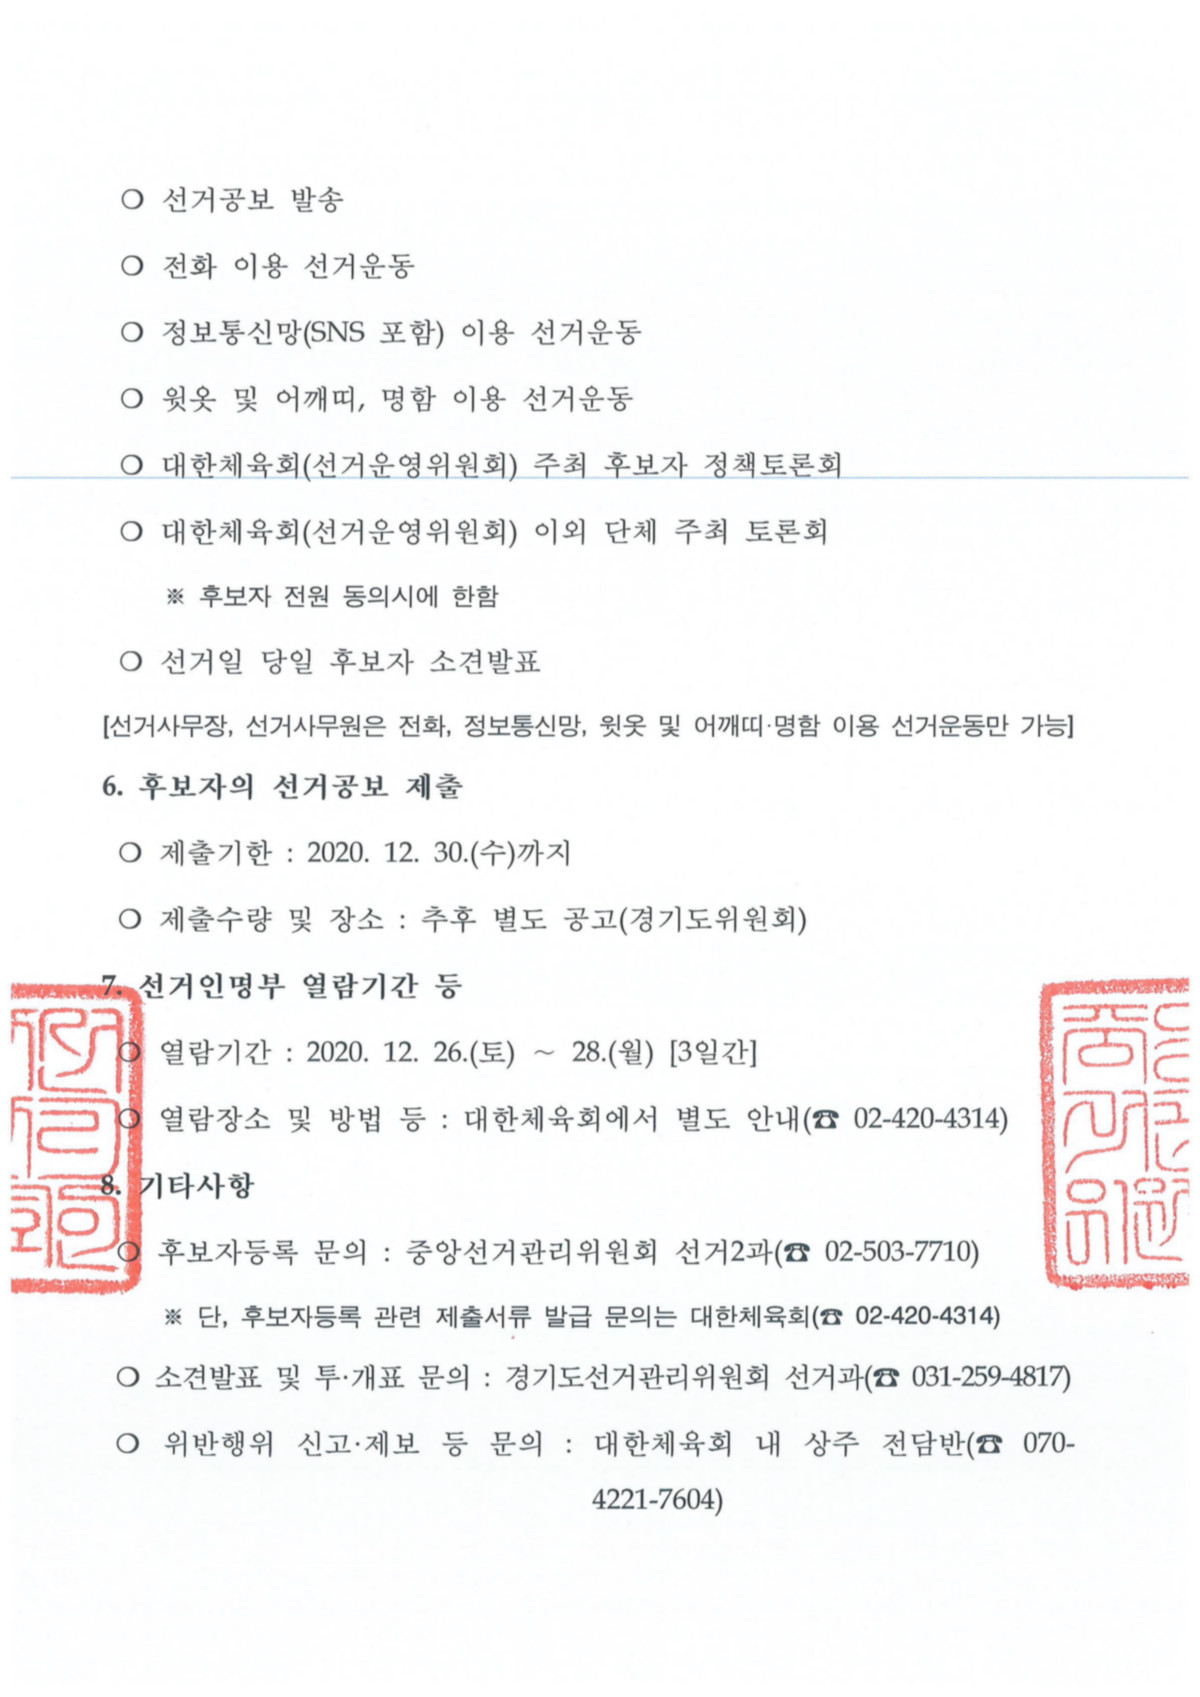 ❍ 선거공보 발송
❍ 전화 이용 선거운동
❍ 정보통신망(SNS 포함) 이용 선거운동
❍ 윗옷 및 어깨띠, 명함 이용 선거운동
❍ 대한체육회(선거운영위원회) 주최 후보자 정책토론회
❍ 대한체육회(선거운영위원회) 이외 단체 주최 토론회
※ 후보자 전원 동의시에 한함
❍ 선거일 당일 후보자 소견발표
[선거사무장, 선거사무원은 전화, 정보통신망, 윗옷 및 어깨띠·명함 이용 선거운동만 가능]
6. 후보자의 선거공보 제출
❍ 제출기한 : 2020. 12. 30.(수)까지
❍ 제출수량 및 장소 : 추후 별도 공고(경기도위원회)
7. 선거인명부 열람기간 등
❍ 열람기간 : 2020. 12. 26.(토) ~ 28.(월) [3일간]
❍ 열람장소 및 방법 등 : 대한체육회에서 별도 안내(☎ 02-420-4314)
8. 기타사항
❍ 후보자등록 문의 : 중앙선거관리위원회 선거2과(☎ 02-503-7710)
※ 단, 후보자등록 관련 제출서류 발급 문의는 대한체육회(☎ 02-420-4314)
❍ 소견발표 및 투·개표 문의 : 경기도선거관리위원회 선거과(☎ 031-259-4817)
❍ 위반행위 신고·제보 등 문의 : 대한체육회 내 상주 전담반(☎ 070-
4221-7604)